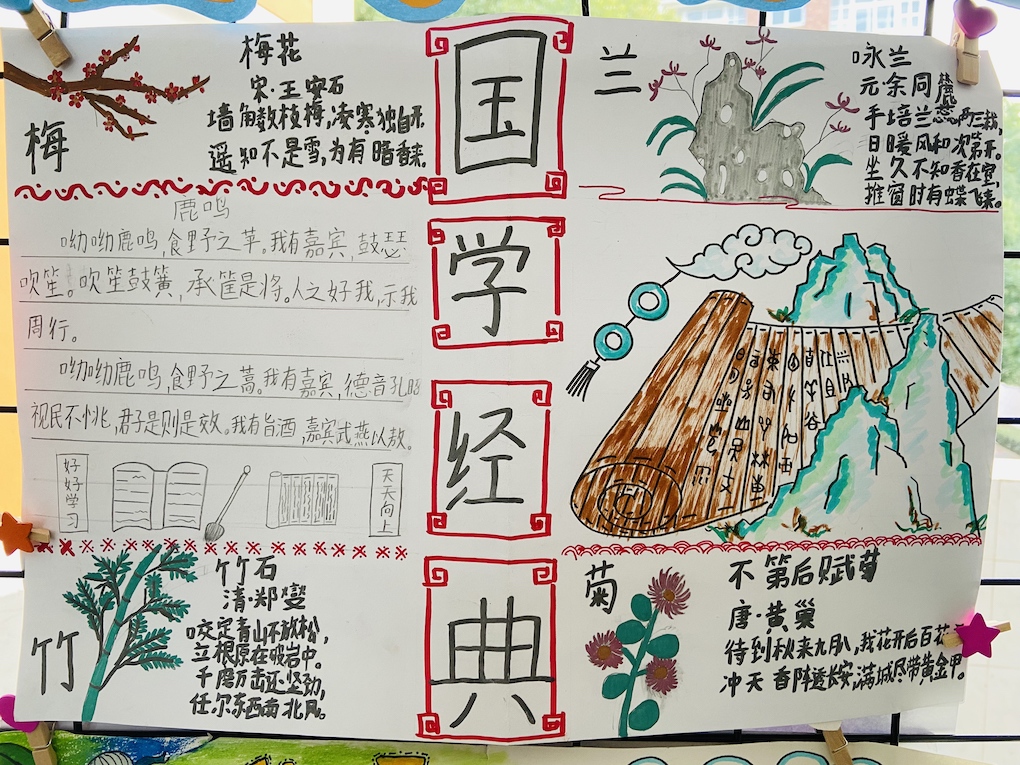 国
学
经
典
梅
梅花
宋·王安石
墙角数枝梅,凌寒独自开
遥知不是雪,为有暗香来.
兰
咏兰
元·余同麓
手培兰蕊,两三栽,
日暖风和次第开.
坐久不知香在室,
推窗时有蝶飞来.
鹿鸣
呦呦鹿鸣,食野之苹。我有嘉宾,鼓瑟
吹笙。吹笙鼓簧,承筐是将。人之好我,示我
周行。
呦呦鹿鸣,食野之蒿。我有嘉宾,德音孔昭
视民不恌,君子是则是效。我有旨酒,嘉宾式燕以敖.
好好学习
天天向上
竹
竹石
清·郑燮
咬定青山不放松,
立根原在破岩中.
千磨万击还坚劲,
任尔东西南北风。
菊
不第后赋菊
唐·黄巢
待到秋来九月八,我花开后百花
冲天香阵透长安,满城尽带黄金甲。